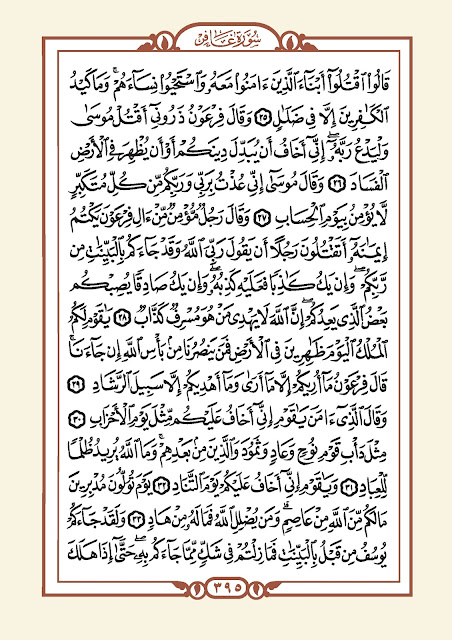 سُورَةُ غَافِرٍ
قَالُوا۟ ٱقْتُلُوٓا۟ أَبْنَآءَ ٱلَّذِينَ ءَامَنُوا۟ مَعَهُۥ وَٱسْتَحْيُوا۟ نِسَآءَهُمْ ۚ وَمَا كَيْدُ
ٱلْكَٰفِرِينَ إِلَّا فِى ضَلَٰلٍ ٢٥ وَقَالَ فِرْعَوْنُ ذَرُونِىٓ أَقْتُلْ مُوسَىٰ
وَلْيَدْعُ رَبَّهُۥٓ ۖ إِنِّىٓ أَخَافُ أَن يُبَدِّلَ دِينَكُمْ أَوْ أَن يُظْهِرَ فِى ٱلْأَرْضِ
ٱلْفَسَادَ ٢٦ وَقَالَ مُوسَىٰٓ إِنِّى عُذْتُ بِرَبِّى وَرَبِّكُم مِّن كُلِّ مُتَكَبِّرٍ
لَّا يُؤْمِنُ بِيَوْمِ ٱلْحِسَابِ ٢٧ وَقَالَ رَجُلٌ مُّؤْمِنٌ مِّنْ ءَالِ فِرْعَوْنَ يَكْتُمُ
إِيمَٰنَهُۥٓ أَتَقْتُلُونَ رَجُلًا أَن يَقُولَ رَبِّىَ ٱللَّهُ وَقَدْ جَآءَكُم بِٱلْبَيِّنَٰتِ مِن
رَّبِّكُمْ ۖ وَإِن يَكُ كَٰذِبًا فَعَلَيْهِ كَذِبُهُۥ ۖ وَإِن يَكُ صَادِقًا يُصِبْكُم
بَعْضُ ٱلَّذِى يَعِدُكُمْ ۖ إِنَّ ٱللَّهَ لَا يَهْدِى مَنْ هُوَ مُسْرِفٌ كَذَّابٌ ٢٨ يَٰقَوْمِ لَكُمُ
ٱلْمُلْكُ ٱلْيَوْمَ ظَٰهِرِينَ فِى ٱلْأَرْضِ فَمَن يَنصُرُنَا مِنۢ بَأْسِ ٱللَّهِ إِن جَآءَنَا ۚ
قَالَ فِرْعَوْنُ مَآ أُرِيكُمْ إِلَّا مَآ أَرَىٰ وَمَآ أَهْدِيكُمْ إِلَّا سَبِيلَ ٱلرَّشَادِ ٢٩
وَقَالَ ٱلَّذِىٓ ءَامَنَ يَٰقَوْمِ إِنِّىٓ أَخَافُ عَلَيْكُم مِّثْلَ يَوْمِ ٱلْأَحْزَابِ ٣٠
مِثْلَ دَأْبِ قَوْمِ نُوحٍ وَعَادٍ وَثَمُودَ وَٱلَّذِينَ مِنۢ بَعْدِهِمْ ۚ وَمَا ٱللَّهُ يُرِيدُ ظُلْمًا
لِّلْعِبَادِ ٣١ وَيَٰقَوْمِ إِنِّىٓ أَخَافُ عَلَيْكُمْ يَوْمَ ٱلتَّنَادِ ٣٢ يَوْمَ تُوَلُّونَ مُدْبِرِينَ
مَا لَكُم مِّنَ ٱللَّهِ مِنْ عَاصِمٍ ۗ وَمَن يُضْلِلِ ٱللَّهُ فَمَا لَهُۥ مِنْ هَادٍ ٣٣ وَلَقَدْ جَآءَكُمْ
يُوسُفُ مِن قَبْلُ بِٱلْبَيِّنَٰتِ فَمَا زِلْتُمْ فِى شَكٍّ مِّمَّا جَآءَكُم بِهِۦ ۖ حَتَّىٰٓ إِذَا هَلَكَ
٣٩٥